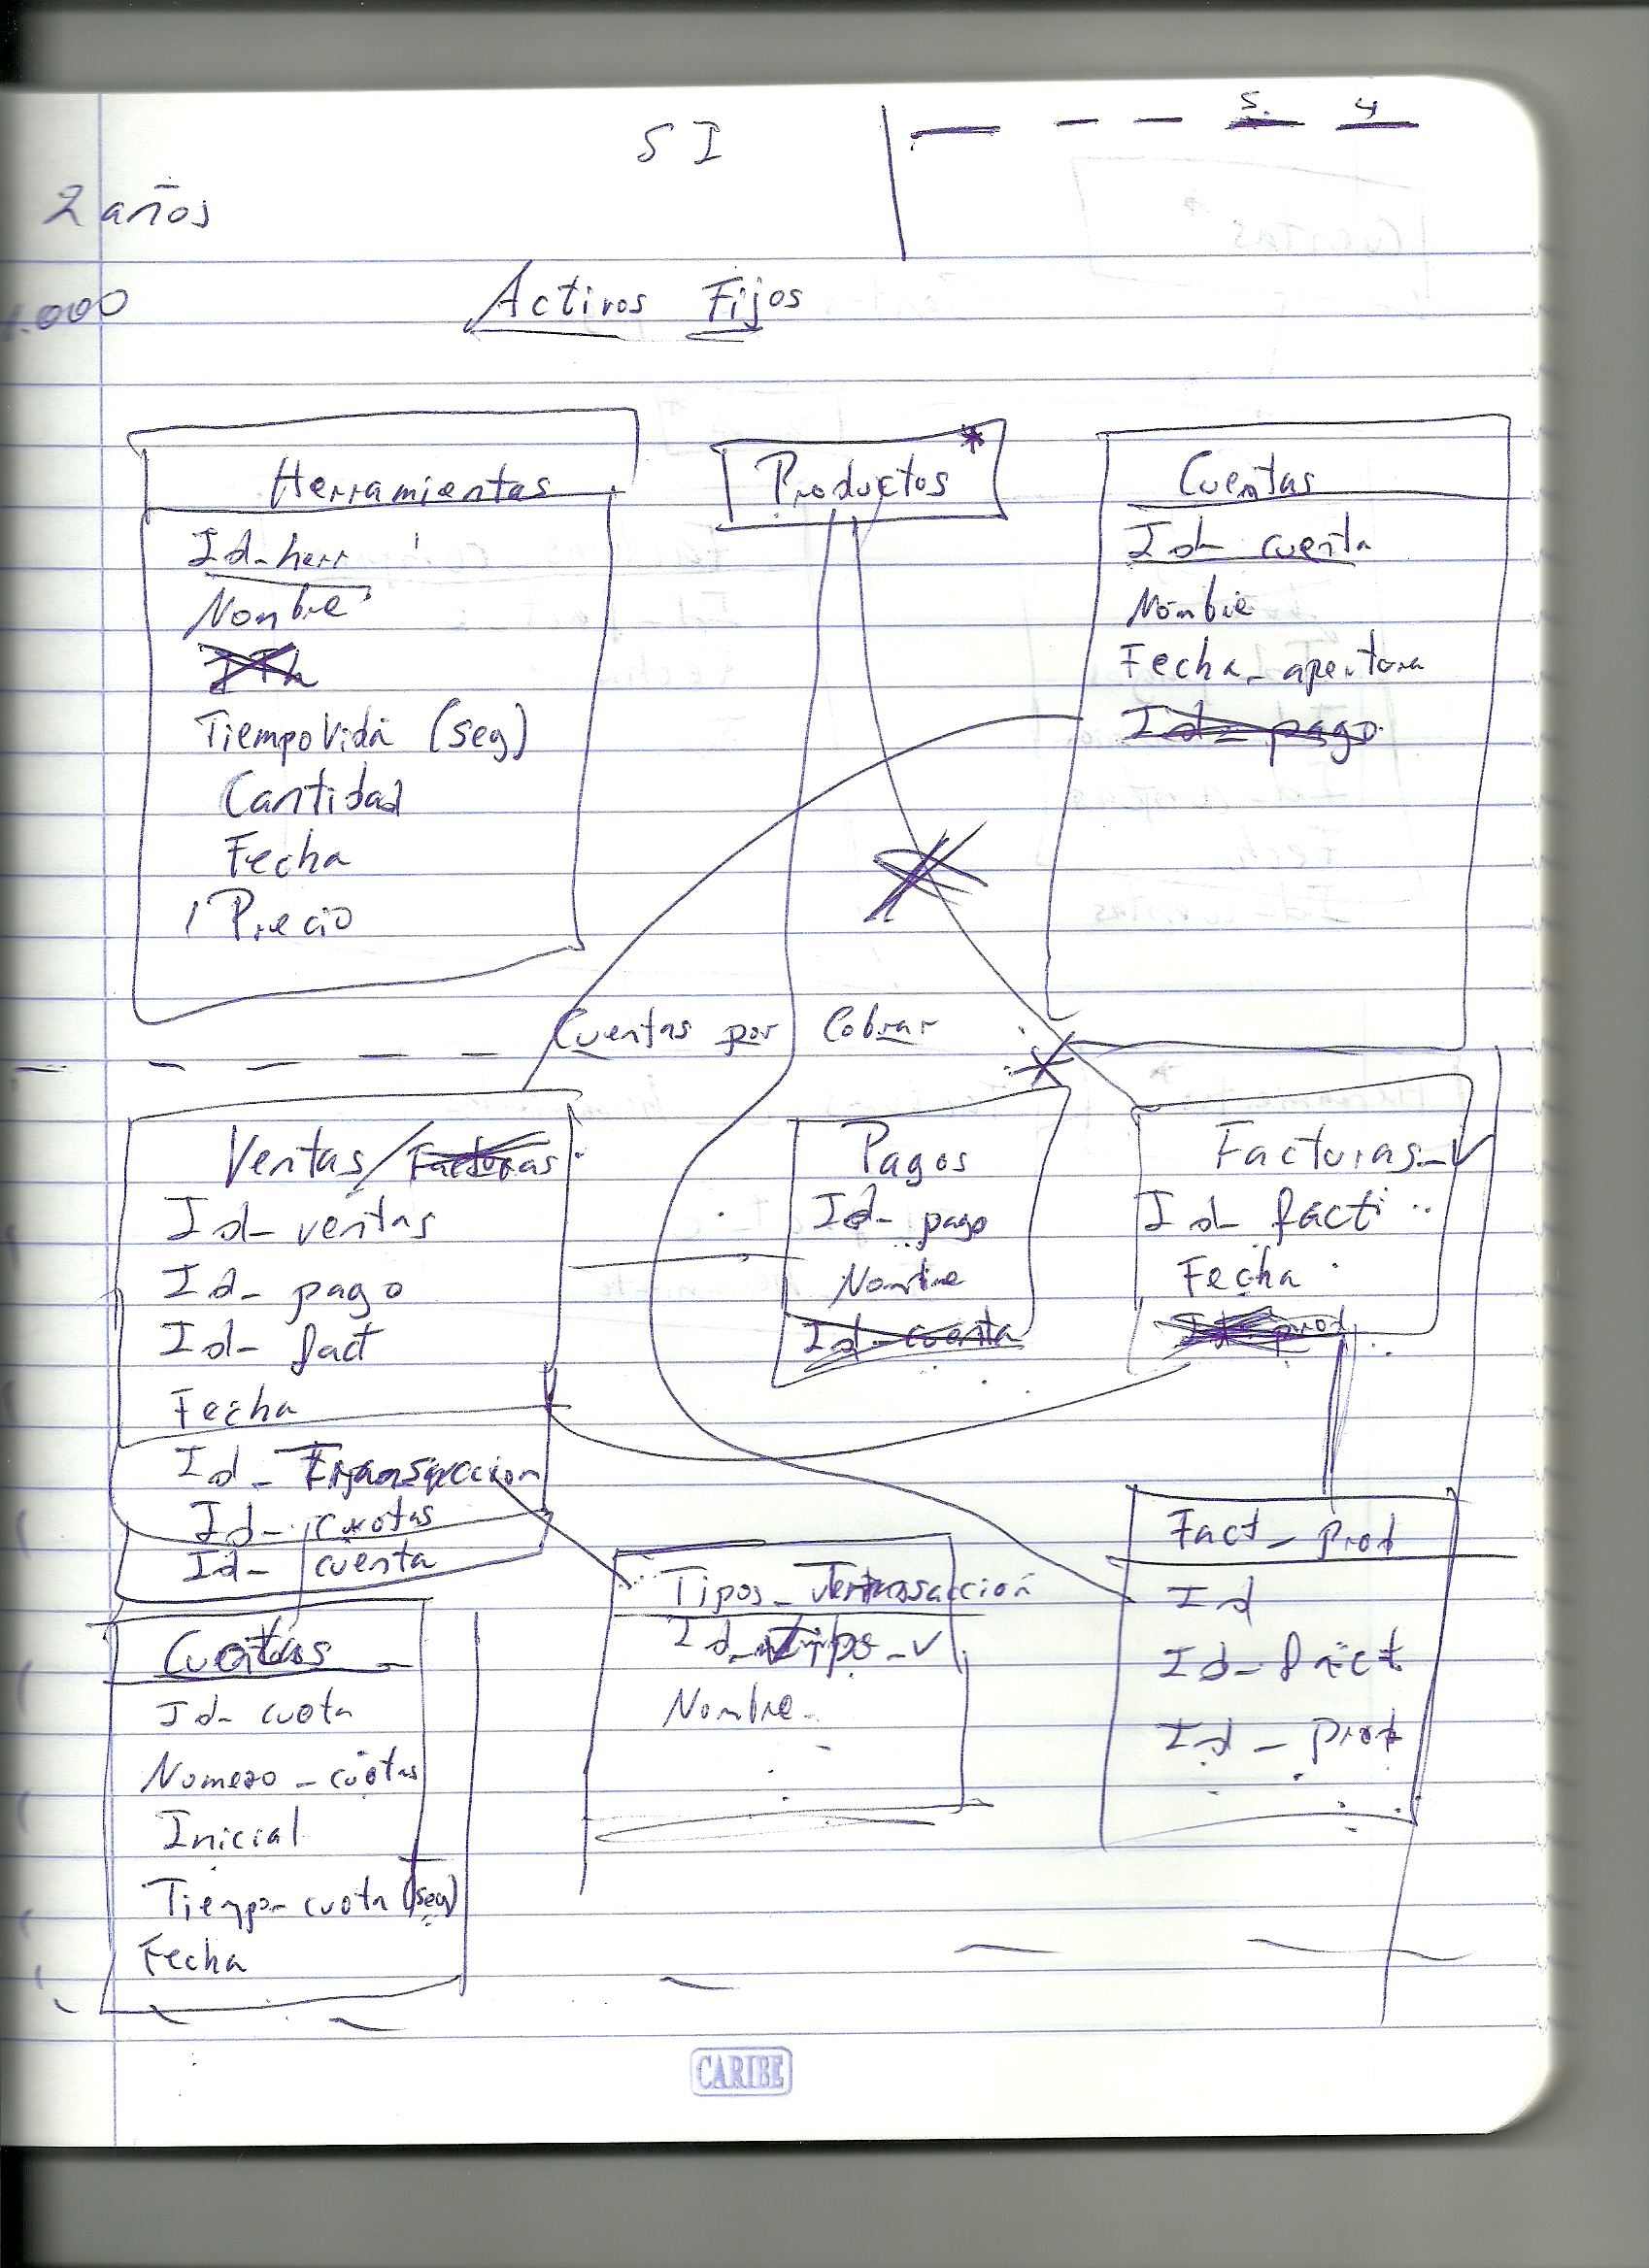 S I
5. 4
2 años
.000
Activos Fijos
Herramientas
Id-herr
Nombre
TiempoVida (seg)
Cantidad
Fecha
Precio
Productos *
Cuentas
Id- cuenta
Nombre
Fecha_apertura
Id- pago
Cuentas por Cobrar
Ventas/Facturas
Id- ventas
Id- pago
Id- fact
Fecha
Id_Transaccion
Id- cuotas
Id- cuenta
Pagos
Id- pago
Nombre
Id-cuenta
Facturas_V
Id- fact
Fecha
Id- prod
Cuotas
Id- cuota
Numero_cuotas
Inicial
Tiempo-cuota (seg)
Fecha
Tipos_Transaccion
Id_Tipo_V
Nombre
Fact_prod
Id
Id-fact
Id_prod
CARIBE